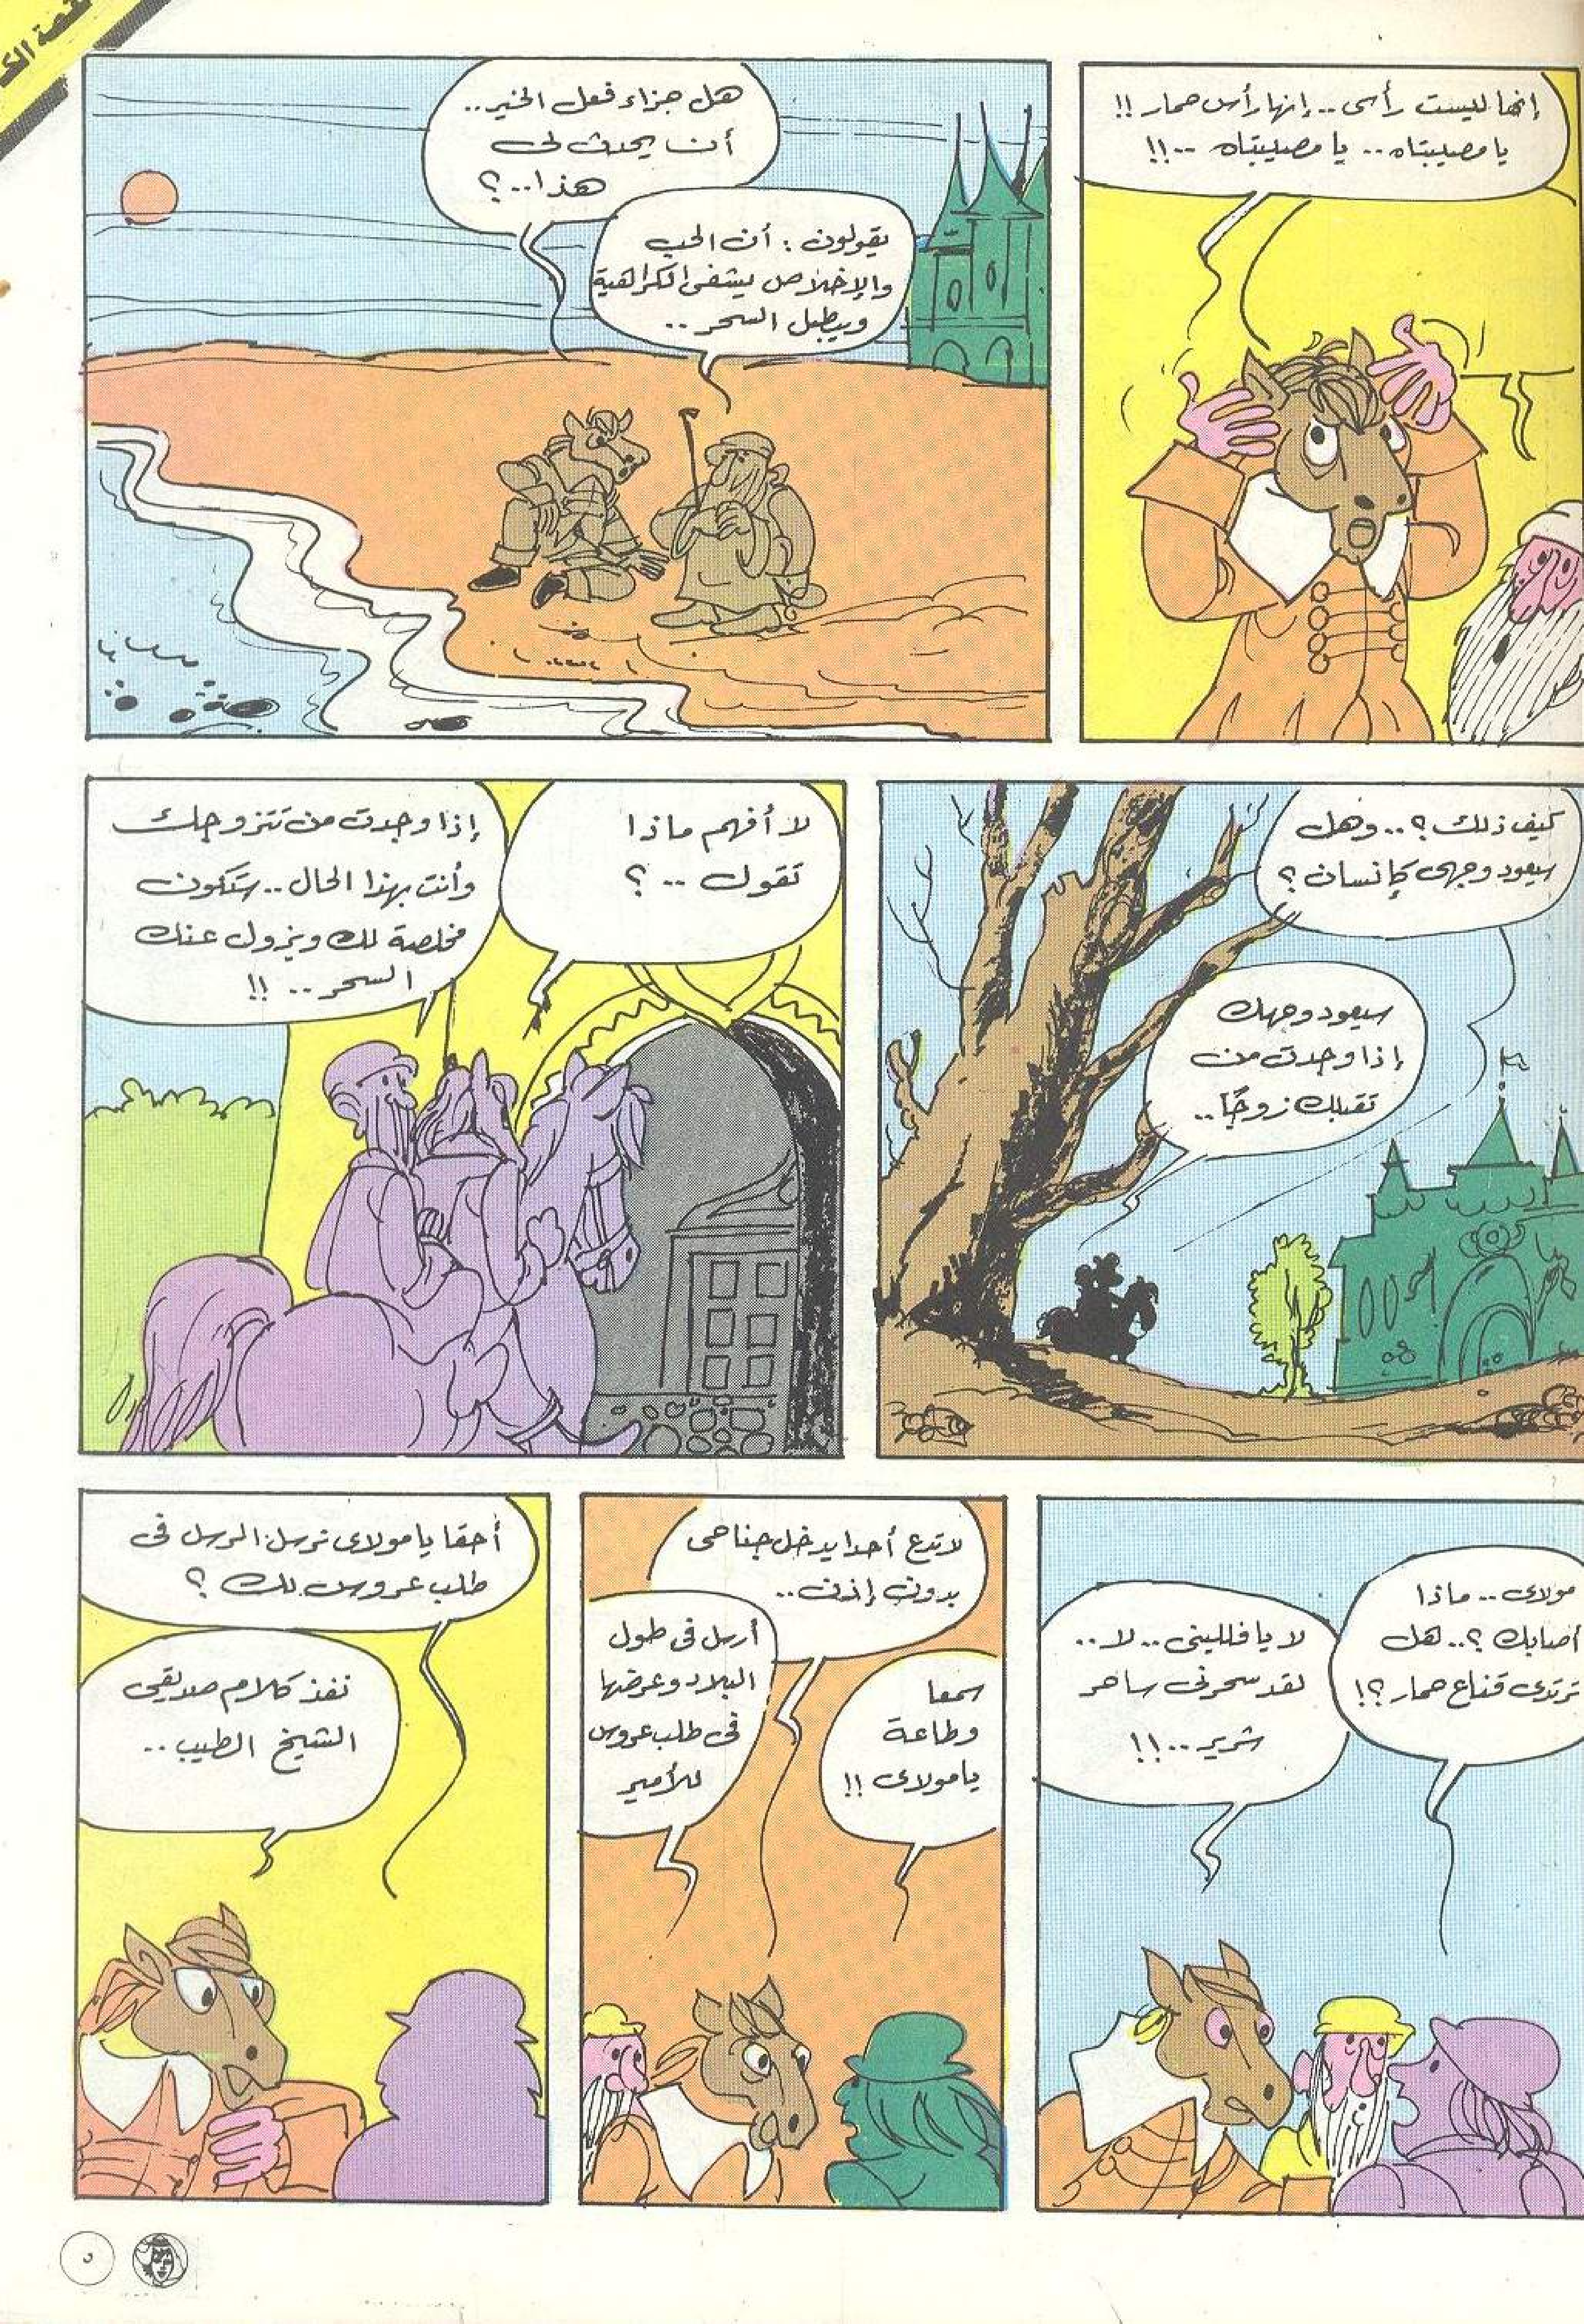 قصة
إنها ليست رأسى .. إنها رأس حمار !!
يا مصيبتاه .. يا مصيبتاه ..!!
هل جزاء فعل الخير ..
أن يحدث لى
هذا..؟
يقولون : أن الحب
والإخلاص يشفى الكراهية
ويبطل السحر ..
كيف ذلك ؟.. وهل
سيعود وجهى كإنسان ؟
سيعود وجهك
إذا وجدت من
تقبلك زوجًا ..
لا أفهم ماذا
تقول .. ؟
إذا وجدت من تتزوجك
وأنت بهذا الحال .. ستكون
مخلصة لك ويزول عنك
السحر .. !!
مولاى .. ماذا
أصابك ؟.. هل
ترتدى قناع حمار ؟!
لا يا فللينى .. لا ..
لقد سحرنى ساحر
شرير ..!!
لا تدع أحدا يدخل جناحى
بدون إذن ..
سمعا
وطاعة
يا مولاى !!
أرسل فى طول
البلاد وعرضها
فى طلب عروس
للأمير
أحقا يا مولاى نرسل الرسل فى
طلب عروس لك ؟
نفذ كلام صديقى
الشيخ الطيب ..
٥